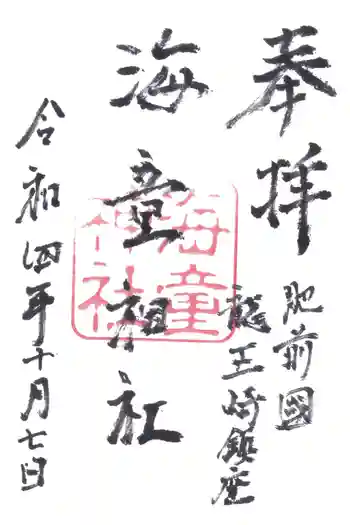 奉拝
肥前國
龍王崎鎮座
海童神社
令和四年十月七日
海童
神社